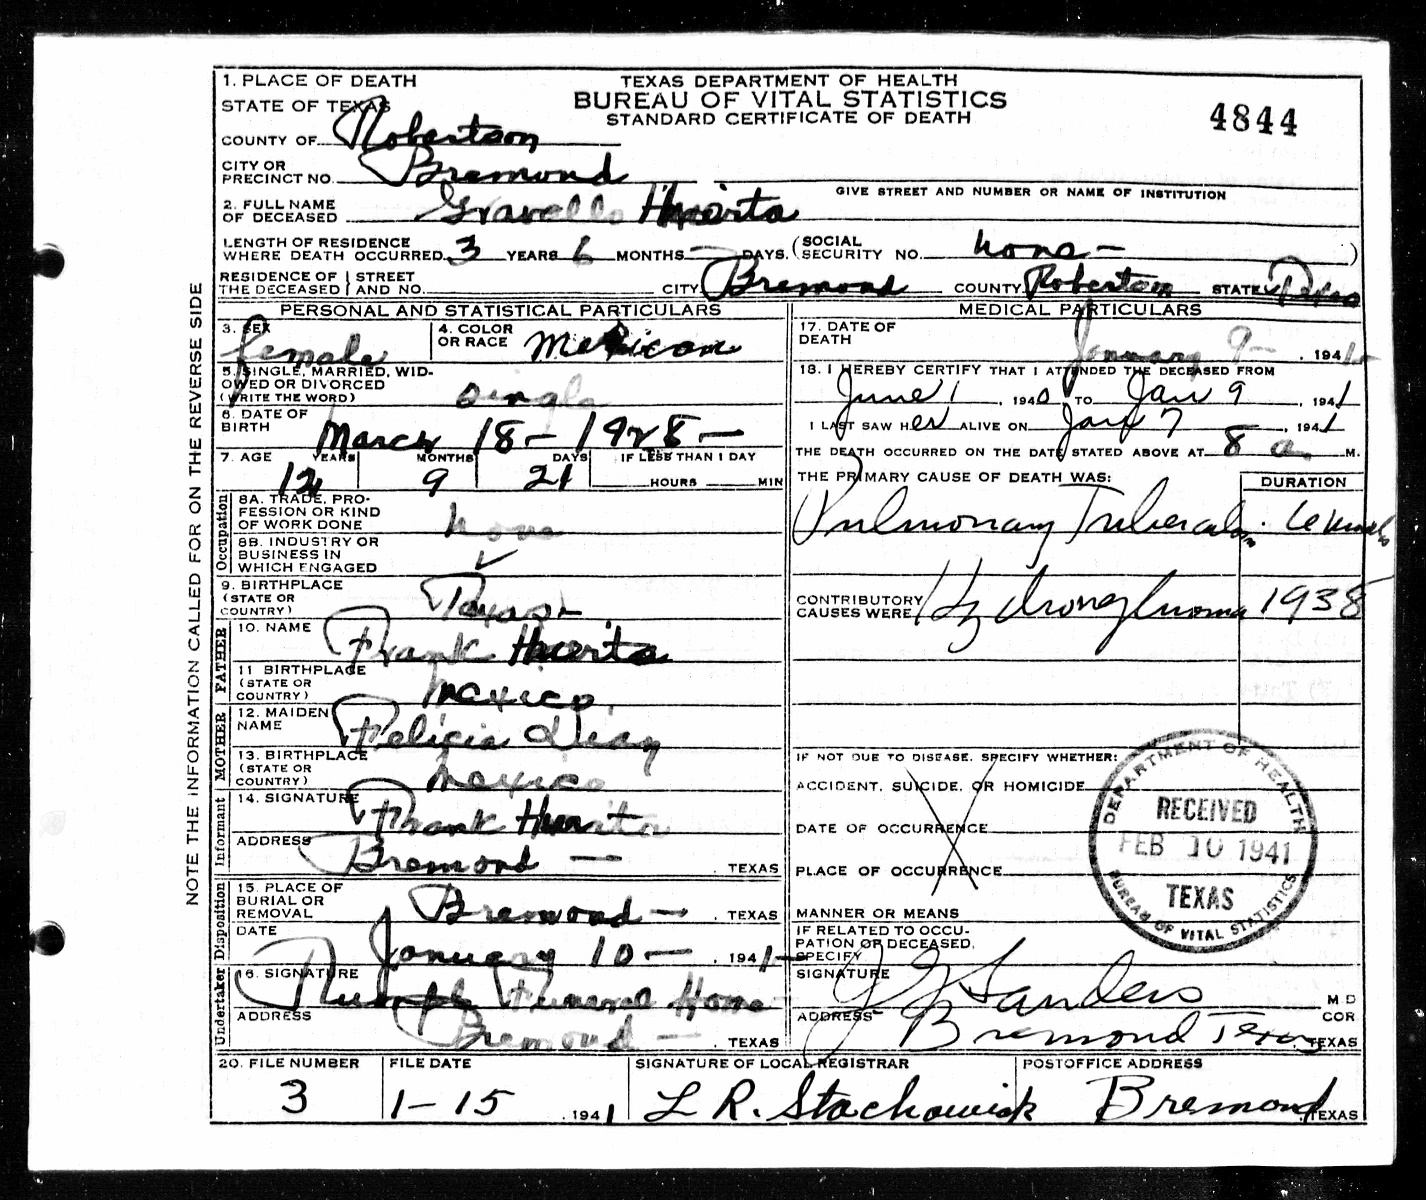 1. PLACE OF DEATH
STATE OF TEXAS
COUNTY OF Robertson
CITY OR
PRECINCT NO. Bremond
TEXAS DEPARTMENT OF HEALTH
BUREAU OF VITAL STATISTICS
STANDARD CERTIFICATE OF DEATH
4844
GIVE STREET AND NUMBER OR NAME OF INSTITUTION
2. FULL NAME
OF DECEASED Gravello Huerta
LENGTH OF RESIDENCE
WHERE DEATH OCCURRED 3 YEARS 6 MONTHS — DAYS. (SOCIAL
SECURITY NO. none — )
RESIDENCE OF | STREET
THE DECEASED | AND NO. CITY Bremond COUNTY Robertson STATE Texas
PERSONAL AND STATISTICAL PARTICULARS
3. SEX
female
4. COLOR
OR RACE Mexican
5. SINGLE, MARRIED, WID-
OWED OR DIVORCED
(WRITE THE WORD) single
6. DATE OF
BIRTH March 18 - 1928 —
7. AGE YEARS MONTHS DAYS IF LESS THAN 1 DAY
12 9 21 HOURS MIN
Occupation
8A. TRADE, PRO-
FESSION OR KIND
OF WORK DONE none
8B. INDUSTRY OR
BUSINESS IN
WHICH ENGAGED
9. BIRTHPLACE
(STATE OR
COUNTRY) Texas
FATHER
10. NAME Frank Huerta
11 BIRTHPLACE
(STATE OR
COUNTRY) Mexico
MOTHER
12. MAIDEN
NAME Felicia Diaz
13. BIRTHPLACE
(STATE OR
COUNTRY) Mexico
Informant
14. SIGNATURE Frank Huerta
ADDRESS Bremond — . TEXAS
Undertaker Disposition
15. PLACE OF
BURIAL OR
REMOVAL Bremond — . TEXAS
DATE January 10 — . 1941
16. SIGNATURE Rumph Funeral Home
ADDRESS Bremond — . TEXAS
MEDICAL PARTICULARS
17. DATE OF
DEATH January 9 - . 1941
18. I HEREBY CERTIFY THAT I ATTENDED THE DECEASED FROM
June 1 , 1940 TO Jan 9 , 1941
I LAST SAW HER ALIVE ON Jan 7 , 1941
THE DEATH OCCURRED ON THE DATE STATED ABOVE AT 8 a. M.
THE PRIMARY CAUSE OF DEATH WAS: DURATION
Pulmonary Tuberculosis.
CONTRIBUTORY
CAUSES WERE 1938
IF NOT DUE TO DISEASE, SPECIFY WHETHER:
ACCIDENT, SUICIDE, OR HOMICIDE
DATE OF OCCURRENCE
PLACE OF OCCURRENCE
MANNER OR MEANS
IF RELATED TO OCCU-
PATION OF DECEASED,
SPECIFY
SIGNATURE Sanders M D
COR
ADDRESS Bremond Texas TEXAS
DEPARTMENT OF HEALTH
RECEIVED
FEB 10 1941
TEXAS
BUREAU OF VITAL STATISTICS
20. FILE NUMBER FILE DATE SIGNATURE OF LOCAL REGISTRAR POSTOFFICE ADDRESS
3 1-15 . 1941 L R. Stachowiak Bremond TEXAS
NOTE THE INFORMATION CALLED FOR ON THE REVERSE SIDE